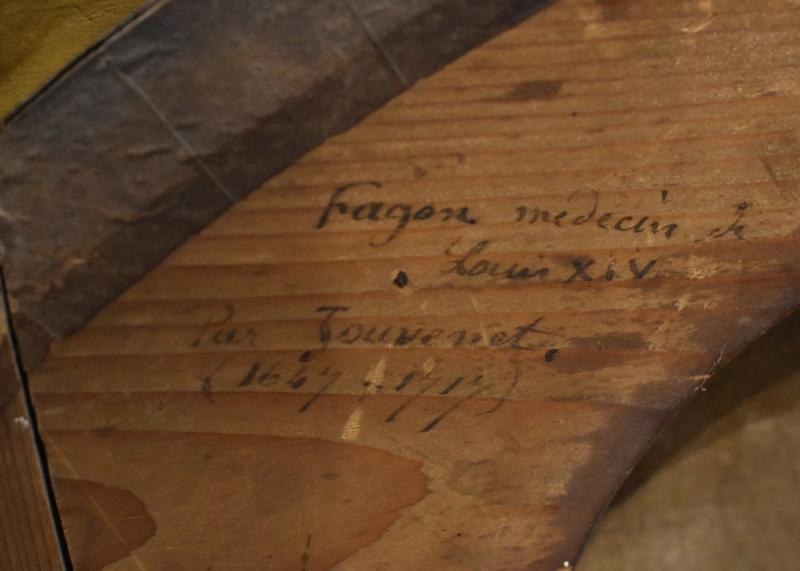 Fagon medecin de
Louis XIV
Par Jouvenet.
(1647 à 1717)